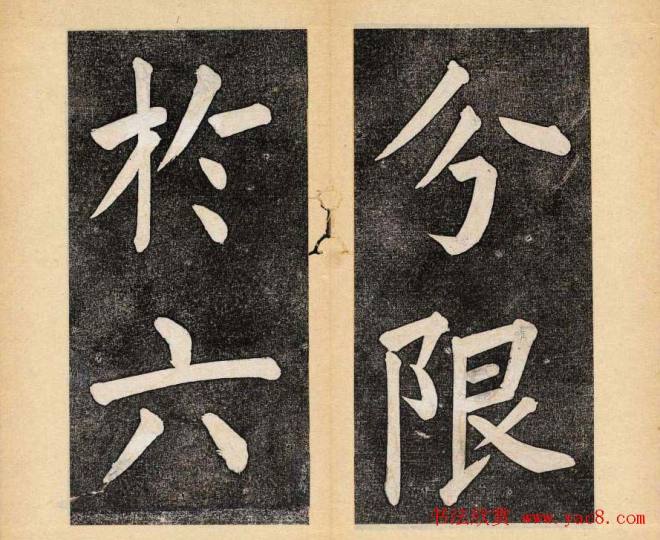 分限
於六
书法欣赏 www.yac8.com